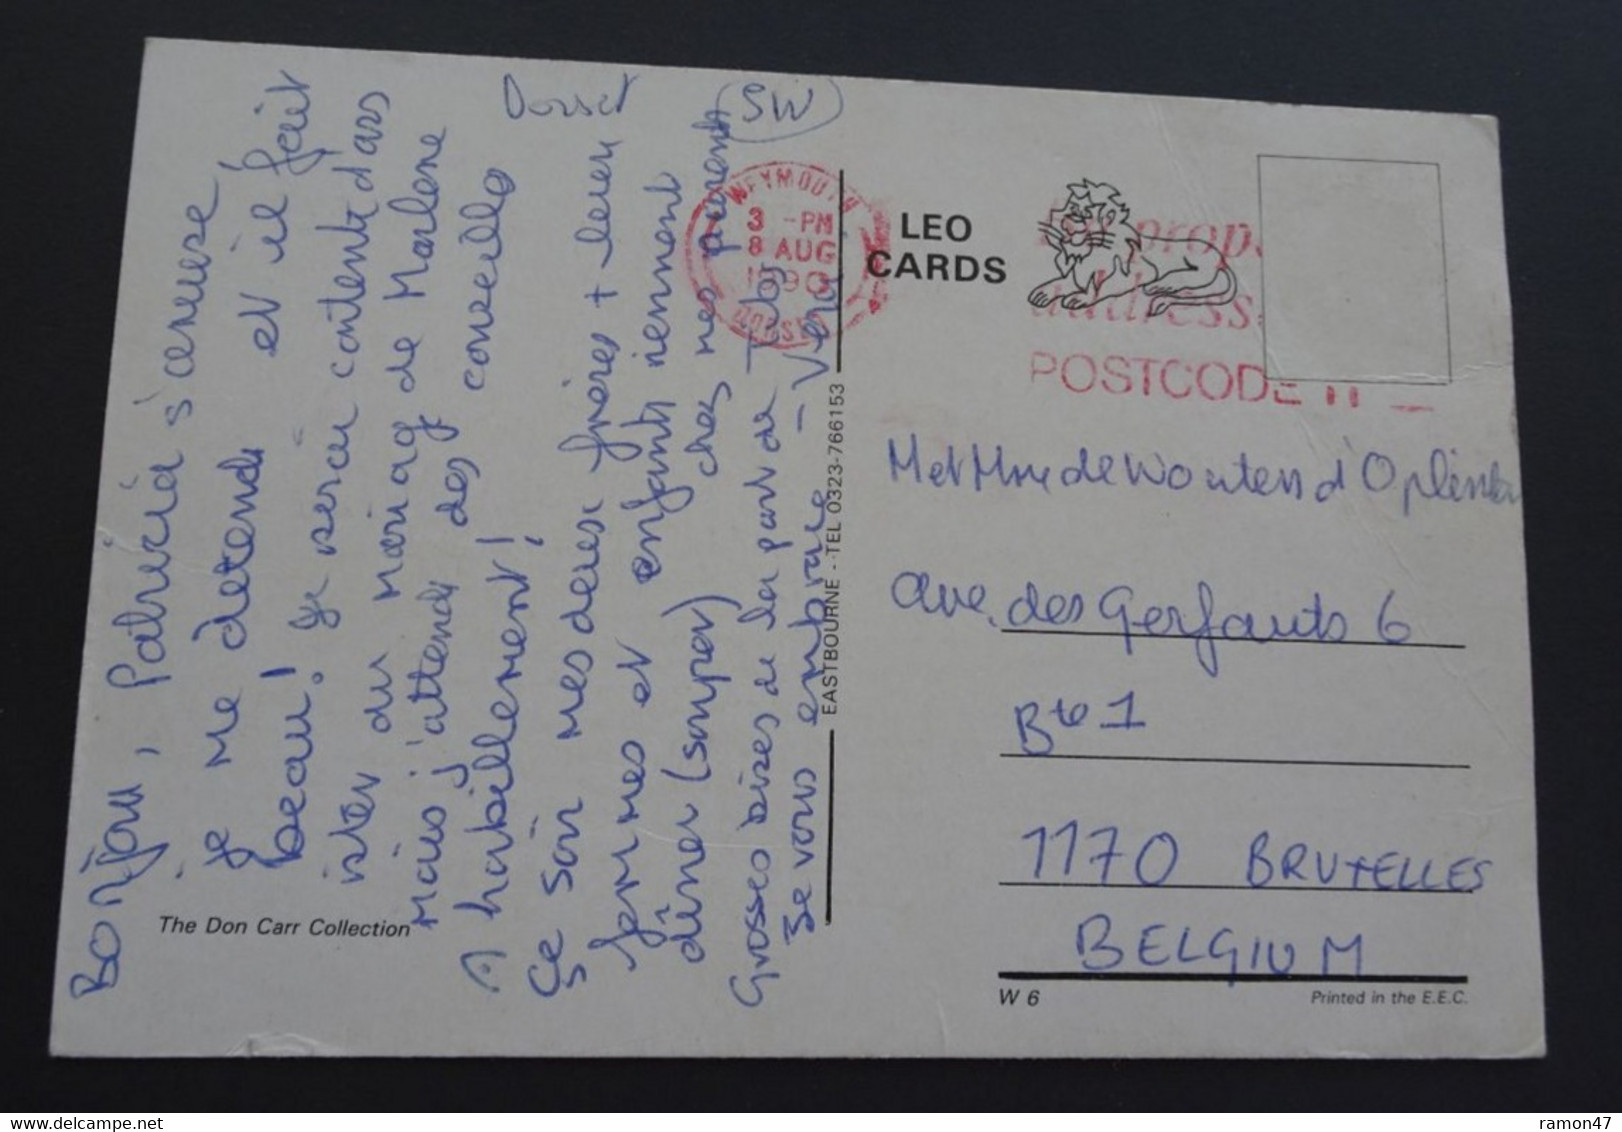 Dorset
SW
Bonjou, Patricia s'amuse
je me détends et il fait
beau! Je serai contente d'ass
ister au mariag de Marlene
mais j'attends des conseills
d'habillement!
Ce soir mes deux frères + leur
femmes et enfants viennent
dîner (souper) chez mes parents
Grosses bises de la part de
Je vous embrasse - Vera
The Don Carr Collection
WEYMOUTH
3 -PM
8 AUG
1990
DORSET
EASTBOURNE - TEL 0323-766153
LEO
CARDS
address
POSTCODE
M et Mme de Wouters d'Oplinter
ave. des Gerfauts 6
Bte 1
1170 BRUXELLES
BELGIUM
W 6
Printed in the E.E.C.
ramon47